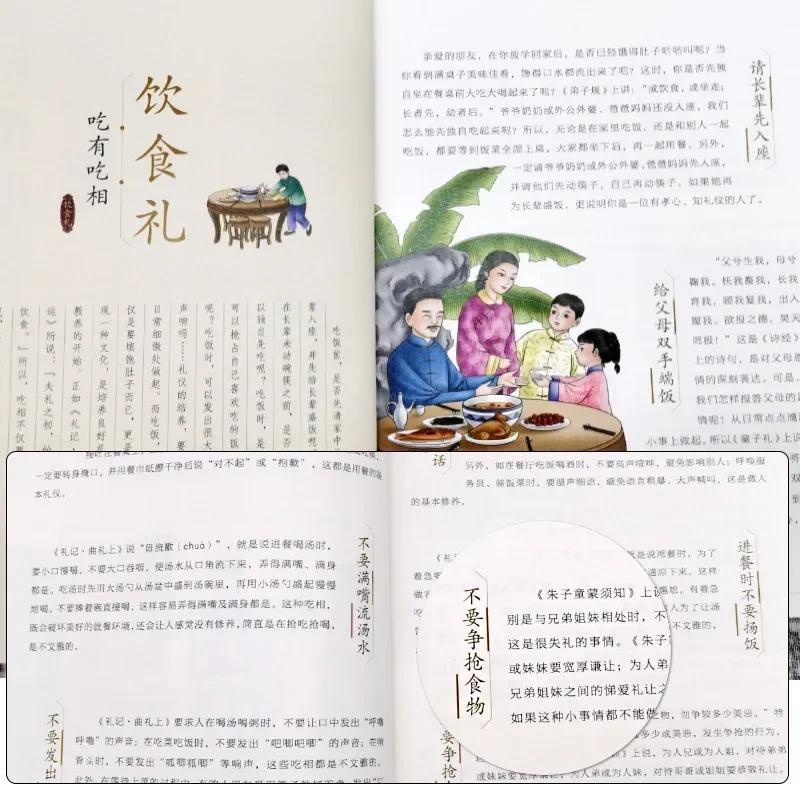 饮食礼
吃有吃相
饮食礼
吃饭前，是否先请家中
辈入座，并先给长辈盛饭呢
在长辈未动碗筷之前，是否
以独自先吃呢？吃饭时，是
可以抢占自己喜欢吃的饭
呢？吃饭时，可以发出很大
声响吗……礼仪的培养，要
日常细微处做起。而吃饭，
仅是要填饱肚子而已，更是
现一种文化，是培养良好
教养的开始。正如《礼记·
运》所说：“夫礼之初，始
饮食。”所以，吃相不仅要
请长辈先入座
亲爱的朋友，在你放学回家后，是否已经饿得肚子咕咕叫呢？当
你看到满桌子美味佳肴，馋得口水都流出来了吧？这时，你是否先独
自坐在餐桌前大吃大喝起来了呢？《弟子规》上讲：“或饮食，或坐走；
长者先，幼者后。”爷爷奶奶或外公外婆、爸爸妈妈还没入座，我们
怎么能先独自吃起来呢？所以，无论是在家里吃饭，还是和别人一起
吃饭，都要等到饭菜全部上桌，大家都坐下后，再一起用餐。另外，
一定请爷爷奶奶或外公外婆，爸爸妈妈先入座，
并请他们先动筷子，自己再动筷子。如果能再
为长辈盛饭，更说明你是一位有孝心、知礼仪的人了。
给父母双手端饭
“父兮生我，母兮
鞠我。抚我畜我，长我
育我，顾我复我，出入
腹我。欲报之德，昊天
罔极！”这是《诗经
上的诗句，是对父母恩
情的深刻表达。可是，
我们怎样报答父母的
情呢？从日常点点滴
小事上做起。所以《童子礼》上说
一定要转身掩口，并用餐巾纸擦干净后说“对不起”或“抱歉”，这都是用餐的基
本礼仪。
不要满嘴流汤水
《礼记·曲礼上》说“毋流歠（chuò）”，就是说进餐喝汤时，
要小口慢喝，不要大口吞咽，使汤水从口角流下来，弄得满嘴、满身
都是。吃汤时先用大汤勺从汤盆中盛到汤碗里，再用小汤勺盛起慢慢
地喝，不要捧着碗直接喝，这样容易弄得满嘴及满身都是。这种吃相，
既会破坏美好的就餐环境，还会让人感觉没有修养，简直是在抢吃抢喝，
是不文雅的。
不要发出
《礼记·曲礼上》要求人在喝汤喝粥时，不要让口中发出“呼噜
呼噜”的声音；在吃菜吃饭时，不要发出“吧唧吧唧”的声音；在啃
骨头时，不要发出“呱唧呱唧”等响声，这些吃相都是不文雅的。
话
另外，如在餐厅吃饭喝酒时，不要高声喧哗，避免影响别人；呼唤服
务员、催饭菜时，要温声细语，避免语言粗暴、大声喊叫，这是做人
的基本修养。
进餐时不要扬饭
是说用餐时，为了
速凉下来。这样
尴尬，有着急
为了让汤
不文雅的。
不要争抢食物
《朱子童蒙须知》上
别是与兄弟姐妹相处时，不
这是很失礼的事情。《朱子
或妹妹要宽厚谦让；为人弟
兄弟姐妹之间的悌爱礼让之
如果这种小事情都不能做
物，勿争较多少美恶。”特
多少美恶，发生争抢的行为，
上说，为人兄或为人姐，对待弟弟
妹妹要宽厚谦让；为人弟或为人妹，对待哥哥或姐姐要恭敬礼让。
要争抢